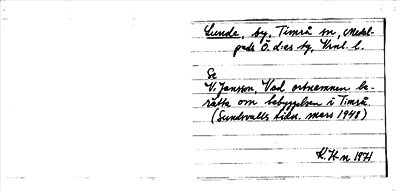 Lunde, by, Timrå sn, Medel-
pads Ö. d:as tg, Vrnl. l.
Se
V. Jansson, Vad ortnamnen be-
rätta om bebyggelsen i Timrå.
(Sundsvalls tidn. mars 1948)
K. H-n 1971